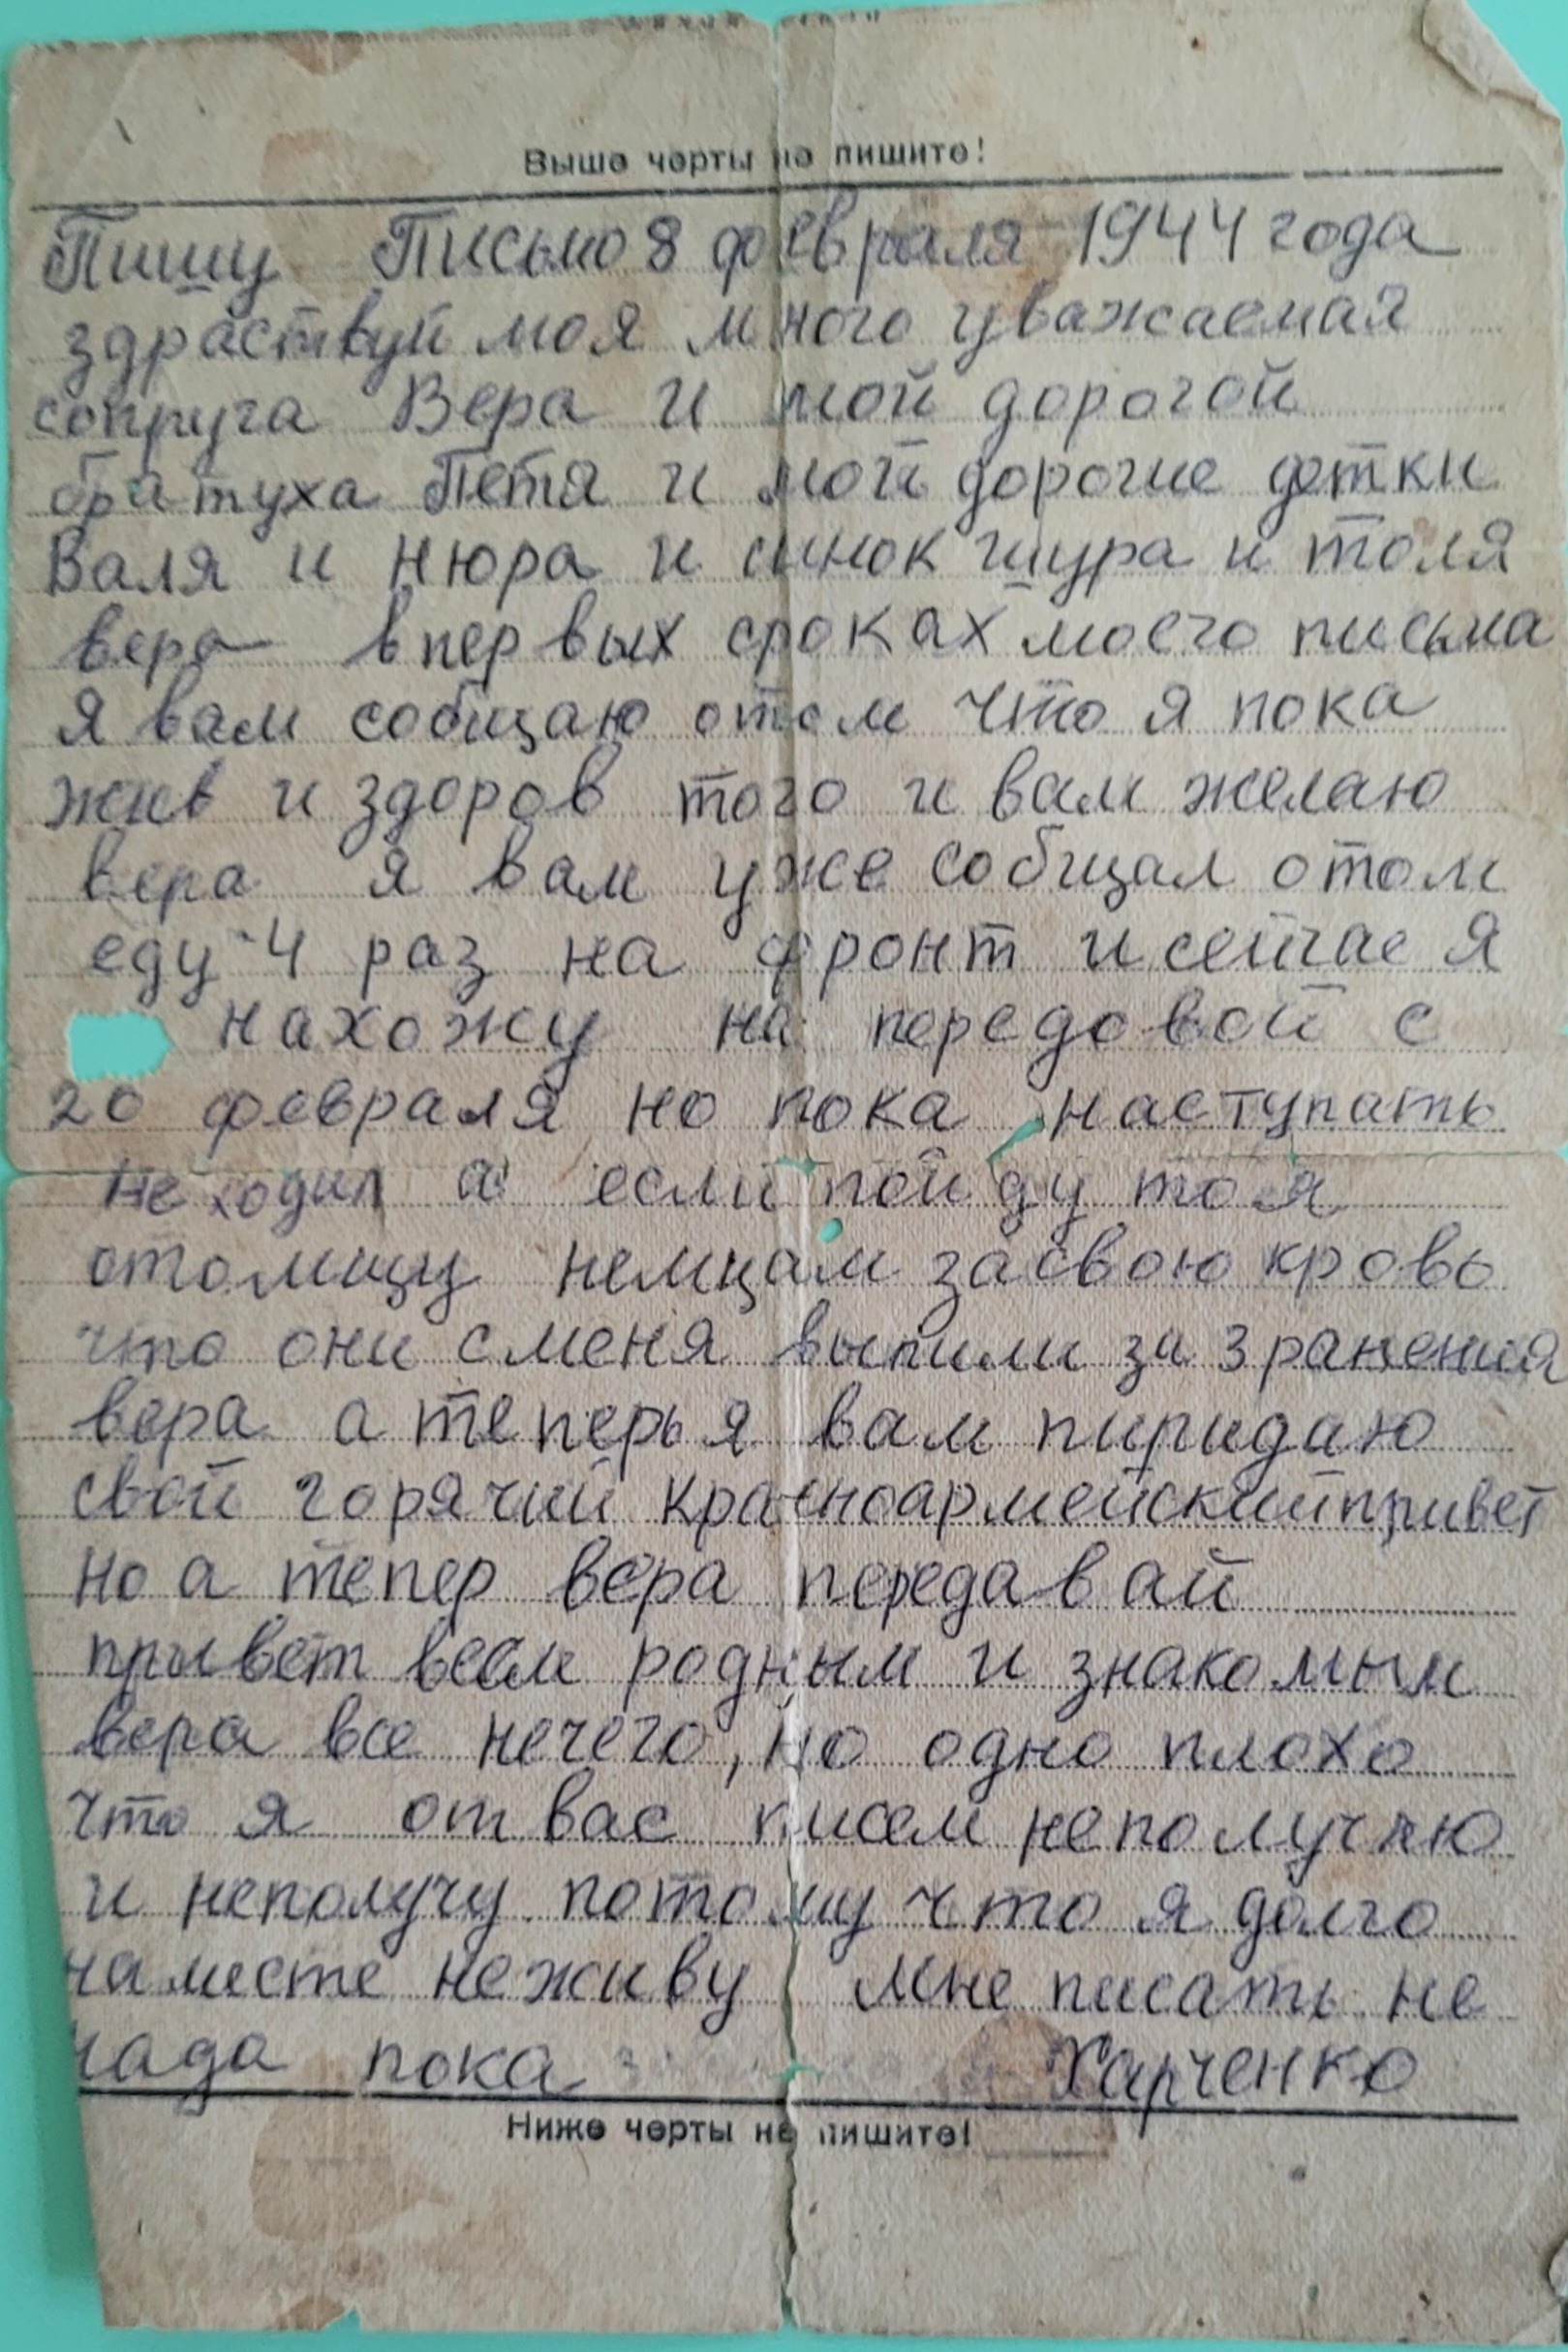 Выше черты не пишите!
Пишу Письмо 8 февраля 1944 года
здраствуй моя много уважаемая
сопруга Вера и мой дорогой
братуха Петя и мои дорогие детки
Валя и Нюра и синок шура и толя
вера в первых сроках моего письма
я вам собщаю отом что я пока
жив и здоров того и вам желаю
вера я вам уже собщал отом
еду 4 раз на фронт и сейчас я
нахожу на передовой с
20 февраля но пока наступать
не ходил а если пойду то я
отомщу немцам за свою кровь
что они с меня выпили за 3 ранения
вера а теперь я вам пиридаю
свой горячий красноармейский привет
но а тепер вера передавай
привет всем родным и знакомым
вера все нечего, но одно плохо
что я от вас писем неполучяю
и неполучу потому что я долго
наместе неживу мне писать не
нада пока Харченко
Ниже черты не пишите!